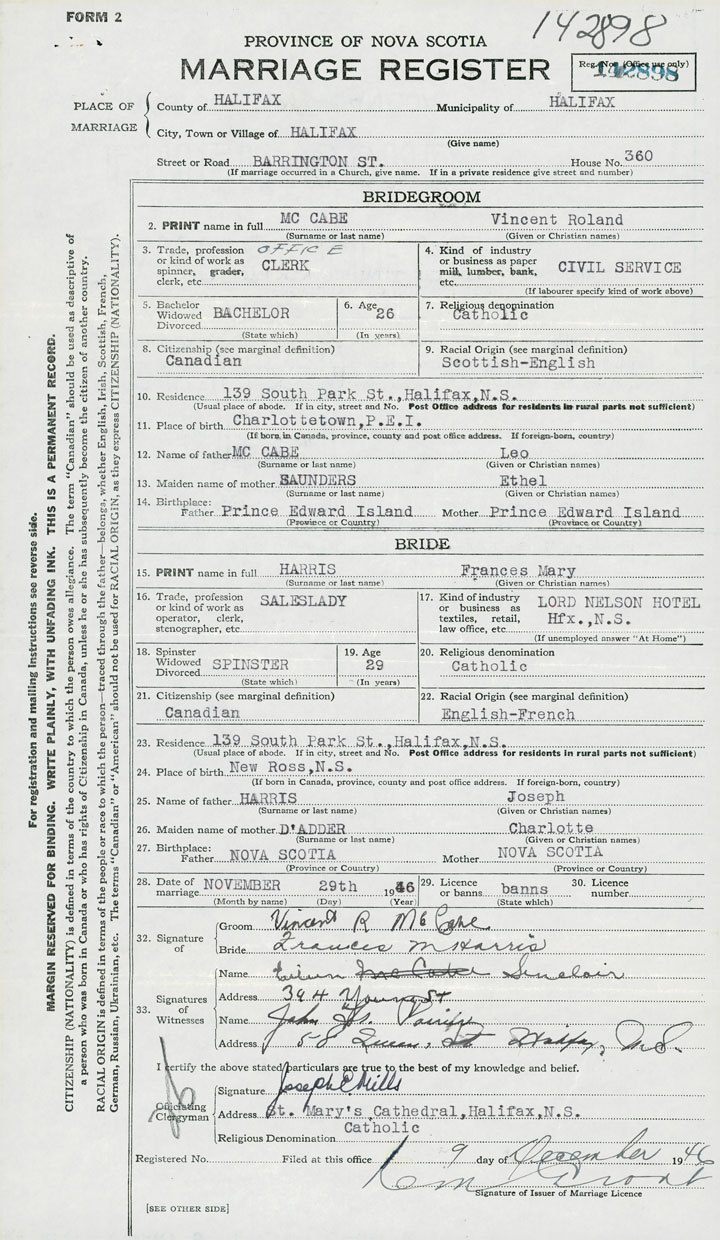 FORM 2
142898
PROVINCE OF NOVA SCOTIA
MARRIAGE REGISTER
Reg. No. (Office use only)
142898
PLACE OF MARRIAGE
County of HALIFAX Municipality of HALIFAX
City, Town or Village of HALIFAX
(Give name)
Street or Road BARRINGTON ST. House No. 360
(If marriage occurred in a Church, give name. If in a private residence give street and number)
BRIDEGROOM
2. PRINT name in full MC CABE Vincent Roland
(Surname or last name) (Given or Christian names)
3. Trade, profession or kind of work as spinner, grader, clerk, etc. OFFICE CLERK
4. Kind of industry or business as paper mill, lumber, bank, etc. CIVIL SERVICE
(If labourer specify kind of work above)
5. Bachelor Widowed Divorced BACHELOR
(State which)
6. Age 26
(In years)
7. Religious denomination
Catholic
8. Citizenship (see marginal definition)
Canadian
9. Racial Origin (see marginal definition)
Scottish-English
10. Residence 139 South Park St.,Halifax,N.S.
(Usual place of abode. If in city, street and No. Post Office address for residents in rural parts not sufficient)
11. Place of birth Charlottetown,P.E.I.
(If born in Canada, province, county and post office address. If foreign-born, country)
12. Name of father MC CABE Leo
(Surname or last name) (Given or Christian names)
13. Maiden name of mother SAUNDERS Ethel
(Surname or last name) (Given or Christian names)
14. Birthplace:
Father Prince Edward Island Mother Prince Edward Island
(Province or Country) (Province or Country)
BRIDE
15. PRINT name in full HARRIS Frances Mary
(Surname or last name) (Given or Christian names)
16. Trade, profession or kind of work as operator, clerk, stenographer, etc. SALESLADY
17. Kind of industry or business as textiles, retail, law office, etc. LORD NELSON HOTEL Hfx.,N.S.
(If unemployed answer "At Home")
18. Spinster Widowed Divorced SPINSTER
(State which)
19. Age
29
(In years)
20. Religious denomination
Catholic
21. Citizenship (see marginal definition)
Canadian
22. Racial Origin (see marginal definition)
English-French
23. Residence 139 South Park St.,Halifax,N.S.
(Usual place of abode. If in city, street and No. Post Office address for residents in rural parts not sufficient)
24. Place of birth New Ross,N.S.
(If born in Canada, province, county and post office address. If foreign-born, country)
25. Name of father HARRIS Joseph
(Surname or last name) (Given or Christian names)
26. Maiden name of mother D'ADDER Charlotte
(Surname or last name) (Given or Christian names)
27. Birthplace:
Father NOVA SCOTIA Mother NOVA SCOTIA
(Province or Country) (Province or Country)
28. Date of marriage NOVEMBER 29th 1946
(Month by name) (Day) (Year)
29. Licence or banns banns
(State which)
30. Licence number
32. Signature of
Groom Vincent R McCabe
Bride Frances M Harris
33. Signatures of Witnesses
Name Sinclair
Address 394 Young St
Name John
Address 58 Queen, St Halifax, N.S.
I certify the above stated particulars are true to the best of my knowledge and belief.
Officiating Clergyman
Signature Joseph C. Mills
Address St. Mary's Cathedral,Halifax,N.S.
Catholic
Religious Denomination
Registered No. Filed at this office 9 day of December 1946
Signature of Issuer of Marriage Licence
[SEE OTHER SIDE]
For registration and mailing instructions see reverse side.
MARGIN RESERVED FOR BINDING. WRITE PLAINLY, WITH UNFADING INK. THIS IS A PERMANENT RECORD.
CITIZENSHIP (NATIONALITY) is defined in terms of the country to which the person owes allegiance. The term "Canadian" should be used as descriptive of
a person who was born in Canada or who has rights of Citizenship in Canada, unless he or she has subsequently become the citizen of another country.
RACIAL ORIGIN is defined in terms of the people or race to which the person—traced through the father—belongs, whether English, Irish, Scottish, French,
German, Russian, Ukrainian, etc. The terms "Canadian" or "American" should not be used for RACIAL ORIGIN, as they express CITIZENSHIP (NATIONALITY).